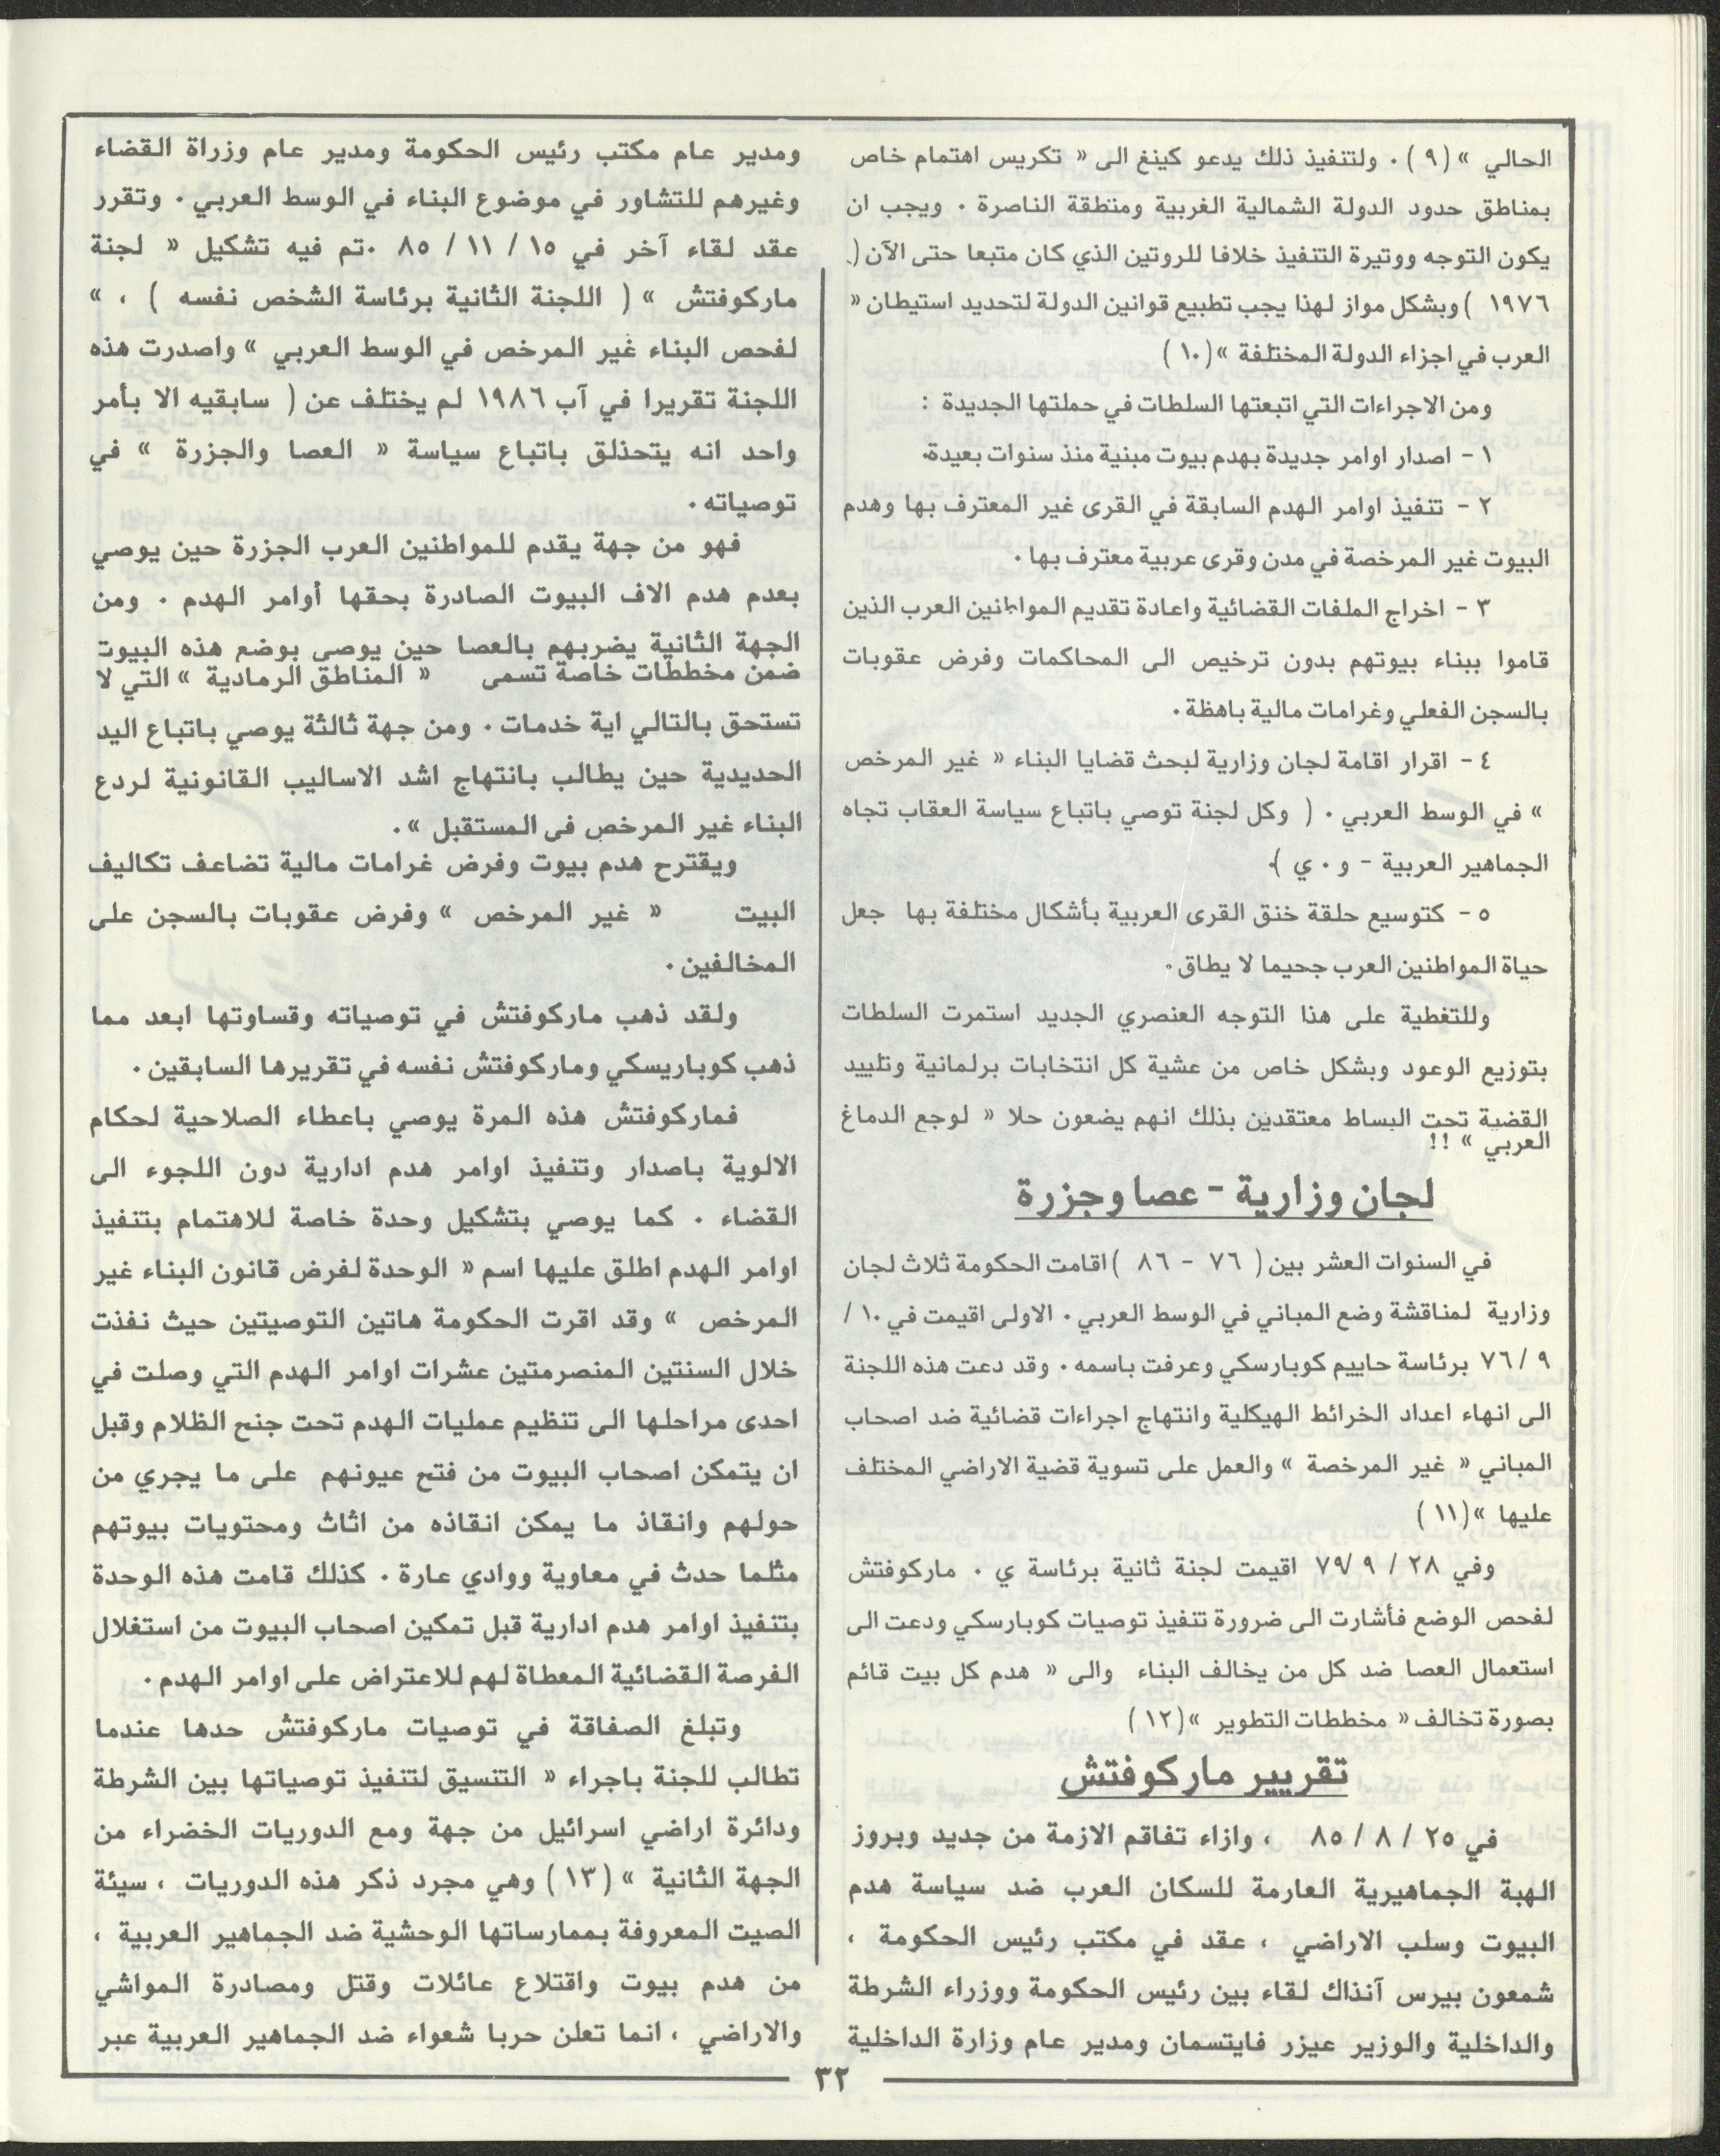 الحالي » (٩) . ولتنفيذ ذلك يدعو كينغ الى « تكريس اهتمام خاص
بمناطق حدود الدولة الشمالية الغربية ومنطقة الناصرة . ويجب ان
يكون التوجه ووتيرة التنفيذ خلافا للروتين الذي كان متبعا حتى الآن (
١٩٧٦ ) وبشكل مواز لهذا يجب تطبيع قوانين الدولة لتحديد استيطان «
العرب في اجزاء الدولة المختلفة » (١٠)
ومن الاجراءات التي اتبعتها السلطات في حملتها الجديدة :
١ - اصدار اوامر جديدة بهدم بيوت مبنية منذ سنوات بعيدة.
٢ - تنفيذ اوامر الهدم السابقة في القرى غير المعترف بها وهدم
البيوت غير المرخصة في مدن وقرى عربية معترف بها .
٣ - اخراج الملفات القضائية واعادة تقديم المواطنين العرب الذين
قاموا ببناء بيوتهم بدون ترخيص الى المحاكمات وفرض عقوبات
بالسجن الفعلي وغرامات مالية باهظة .
٤ - اقرار اقامة لجان وزارية لبحث قضايا البناء « غير المرخص
» في الوسط العربي . ( وكل لجنة توصي باتباع سياسة العقاب تجاه
الجماهير العربية - و . ي ).
٥ - كتوسيع حلقة خنق القرى العربية بأشكال مختلفة بها جعل
حياة المواطنين العرب جحيما لا يطاق .
وللتغطية على هذا التوجه العنصري الجديد استمرت السلطات
بتوزيع الوعود وبشكل خاص من عشية كل انتخابات برلمانية وتلييد
القضية تحت البساط معتقدين بذلك انهم يضعون حلا « لوجع الدماغ
العربي » !!
لجان وزارية - عصا وجزرة
في السنوات العشر بين ( ٧٦ - ٨٦ ) اقامت الحكومة ثلاث لجان
وزارية لمناقشة وضع المباني في الوسط العربي . الاولى اقيمت في ١٠ /
٩ / ٧٦ برئاسة حاييم كوبارسكي وعرفت باسمه . وقد دعت هذه اللجنة
الى انهاء اعداد الخرائط الهيكلية وانتهاج اجراءات قضائية ضد اصحاب
المباني « غير المرخصة » والعمل على تسوية قضية الاراضي المختلف
عليها » (١١)
وفي ٢٨ / ٩ /٧٩ اقيمت لجنة ثانية برئاسة ي . ماركوفتش
لفحص الوضع فأشارت الى ضرورة تنفيذ توصيات كوبارسكي ودعت الى
استعمال العصا ضد كل من يخالف البناء والى « هدم كل بيت قائم
بصورة تخالف « مخططات التطوير » (١٢)
تقريير ماركوفتش
في ٢٥ / ٨ / ٨٥ ، وازاء تفاقم الازمة من جديد وبروز
الهبة الجماهيرية العارمة للسكان العرب ضد سياسة هدم
البيوت وسلب الاراضي ، عقد في مكتب رئيس الحكومة ،
شمعون بيرس آنذاك لقاء بين رئيس الحكومة ووزراء الشرطة
والداخلية والوزير عيزر فايتسمان ومدير عام وزارة الداخلية
ومدير عام مكتب رئيس الحكومة ومدير عام وزراة القضاء
وغيرهم للتشاور في موضوع البناء في الوسط العربي . وتقرر
عقد لقاء آخر في ١٥ / ١١ / ٨٥ .تم فيه تشكيل « لجنة
ماركوفتش » ( اللجنة الثانية برئاسة الشخص نفسه ) ، »
لفحص البناء غير المرخص في الوسط العربي » واصدرت هذه
اللجنة تقريرا في آب ١٩٨٦ لم يختلف عن ( سابقيه الا بأمر
واحد انه يتحذلق باتباع سياسة « العصا والجزرة » في
توصياته .
فهو من جهة يقدم للمواطنين العرب الجزرة حين يوصي
بعدم هدم الاف البيوت الصادرة بحقها أوامر الهدم . ومن
الجهة الثانية يضربهم بالعصا حين يوصي بوضع هذه البيوت
ضمن مخططات خاصة تسمى « المناطق الرمادية » التي لا
تستحق بالتالي اية خدمات . ومن جهة ثالثة يوصي باتباع اليد
الحديدية حين يطالب بانتهاج اشد الاساليب القانونية لردع
البناء غير المرخص في المستقبل » .
ويقترح هدم بيوت وفرض غرامات مالية تضاعف تكاليف
البيت « غير المرخص » وفرض عقوبات بالسجن على
المخالفين .
ولقد ذهب ماركوفتش في توصياته وقساوتها ابعد مما
ذهب كوباريسكي وماركوفتش نفسه في تقريرها السابقين .
فماركوفتش هذه المرة يوصي باعطاء الصلاحية لحكام
الالوية باصدار وتنفيذ اوامر هدم ادارية دون اللجوء الى
القضاء . كما يوصي بتشكيل وحدة خاصة للاهتمام بتنفيذ
اوامر الهدم اطلق عليها اسم « الوحدة لفرض قانون البناء غير
المرخص » وقد اقرت الحكومة هاتين التوصيتين حيث نفذت
خلال السنتين المنصرمتين عشرات اوامر الهدم التي وصلت في
احدى مراحلها الى تنظيم عمليات الهدم تحت جنح الظلام وقبل
ان يتمكن اصحاب البيوت من فتح عيونهم على ما يجري من
حولهم وانقاذ ما يمكن انقاذه من اثاث ومحتويات بيوتهم
مثلما حدث في معاوية ووادي عارة . كذلك قامت هذه الوحدة
بتنفيذ اوامر هدم ادارية قبل تمكين اصحاب البيوت من استغلال
الفرصة القضائية المعطاة لهم للاعتراض على اوامر الهدم .
وتبلغ الصفاقة في توصيات ماركوفتش حدها عندما
تطالب للجنة باجراء « التنسيق لتنفيذ توصياتها بين الشرطة
ودائرة اراضي اسرائيل من جهة ومع الدوريات الخضراء من
الجهة الثانية » (١٣) وهي مجرد ذكر هذه الدوريات ، سيئة
الصيت المعروفة بممارساتها الوحشية ضد الجماهير العربية ،
من هدم بيوت واقتلاع عائلات وقتل ومصادرة المواشي
والاراضي ، انما تعلن حربا شعواء ضد الجماهير العربية عبر
٣٢